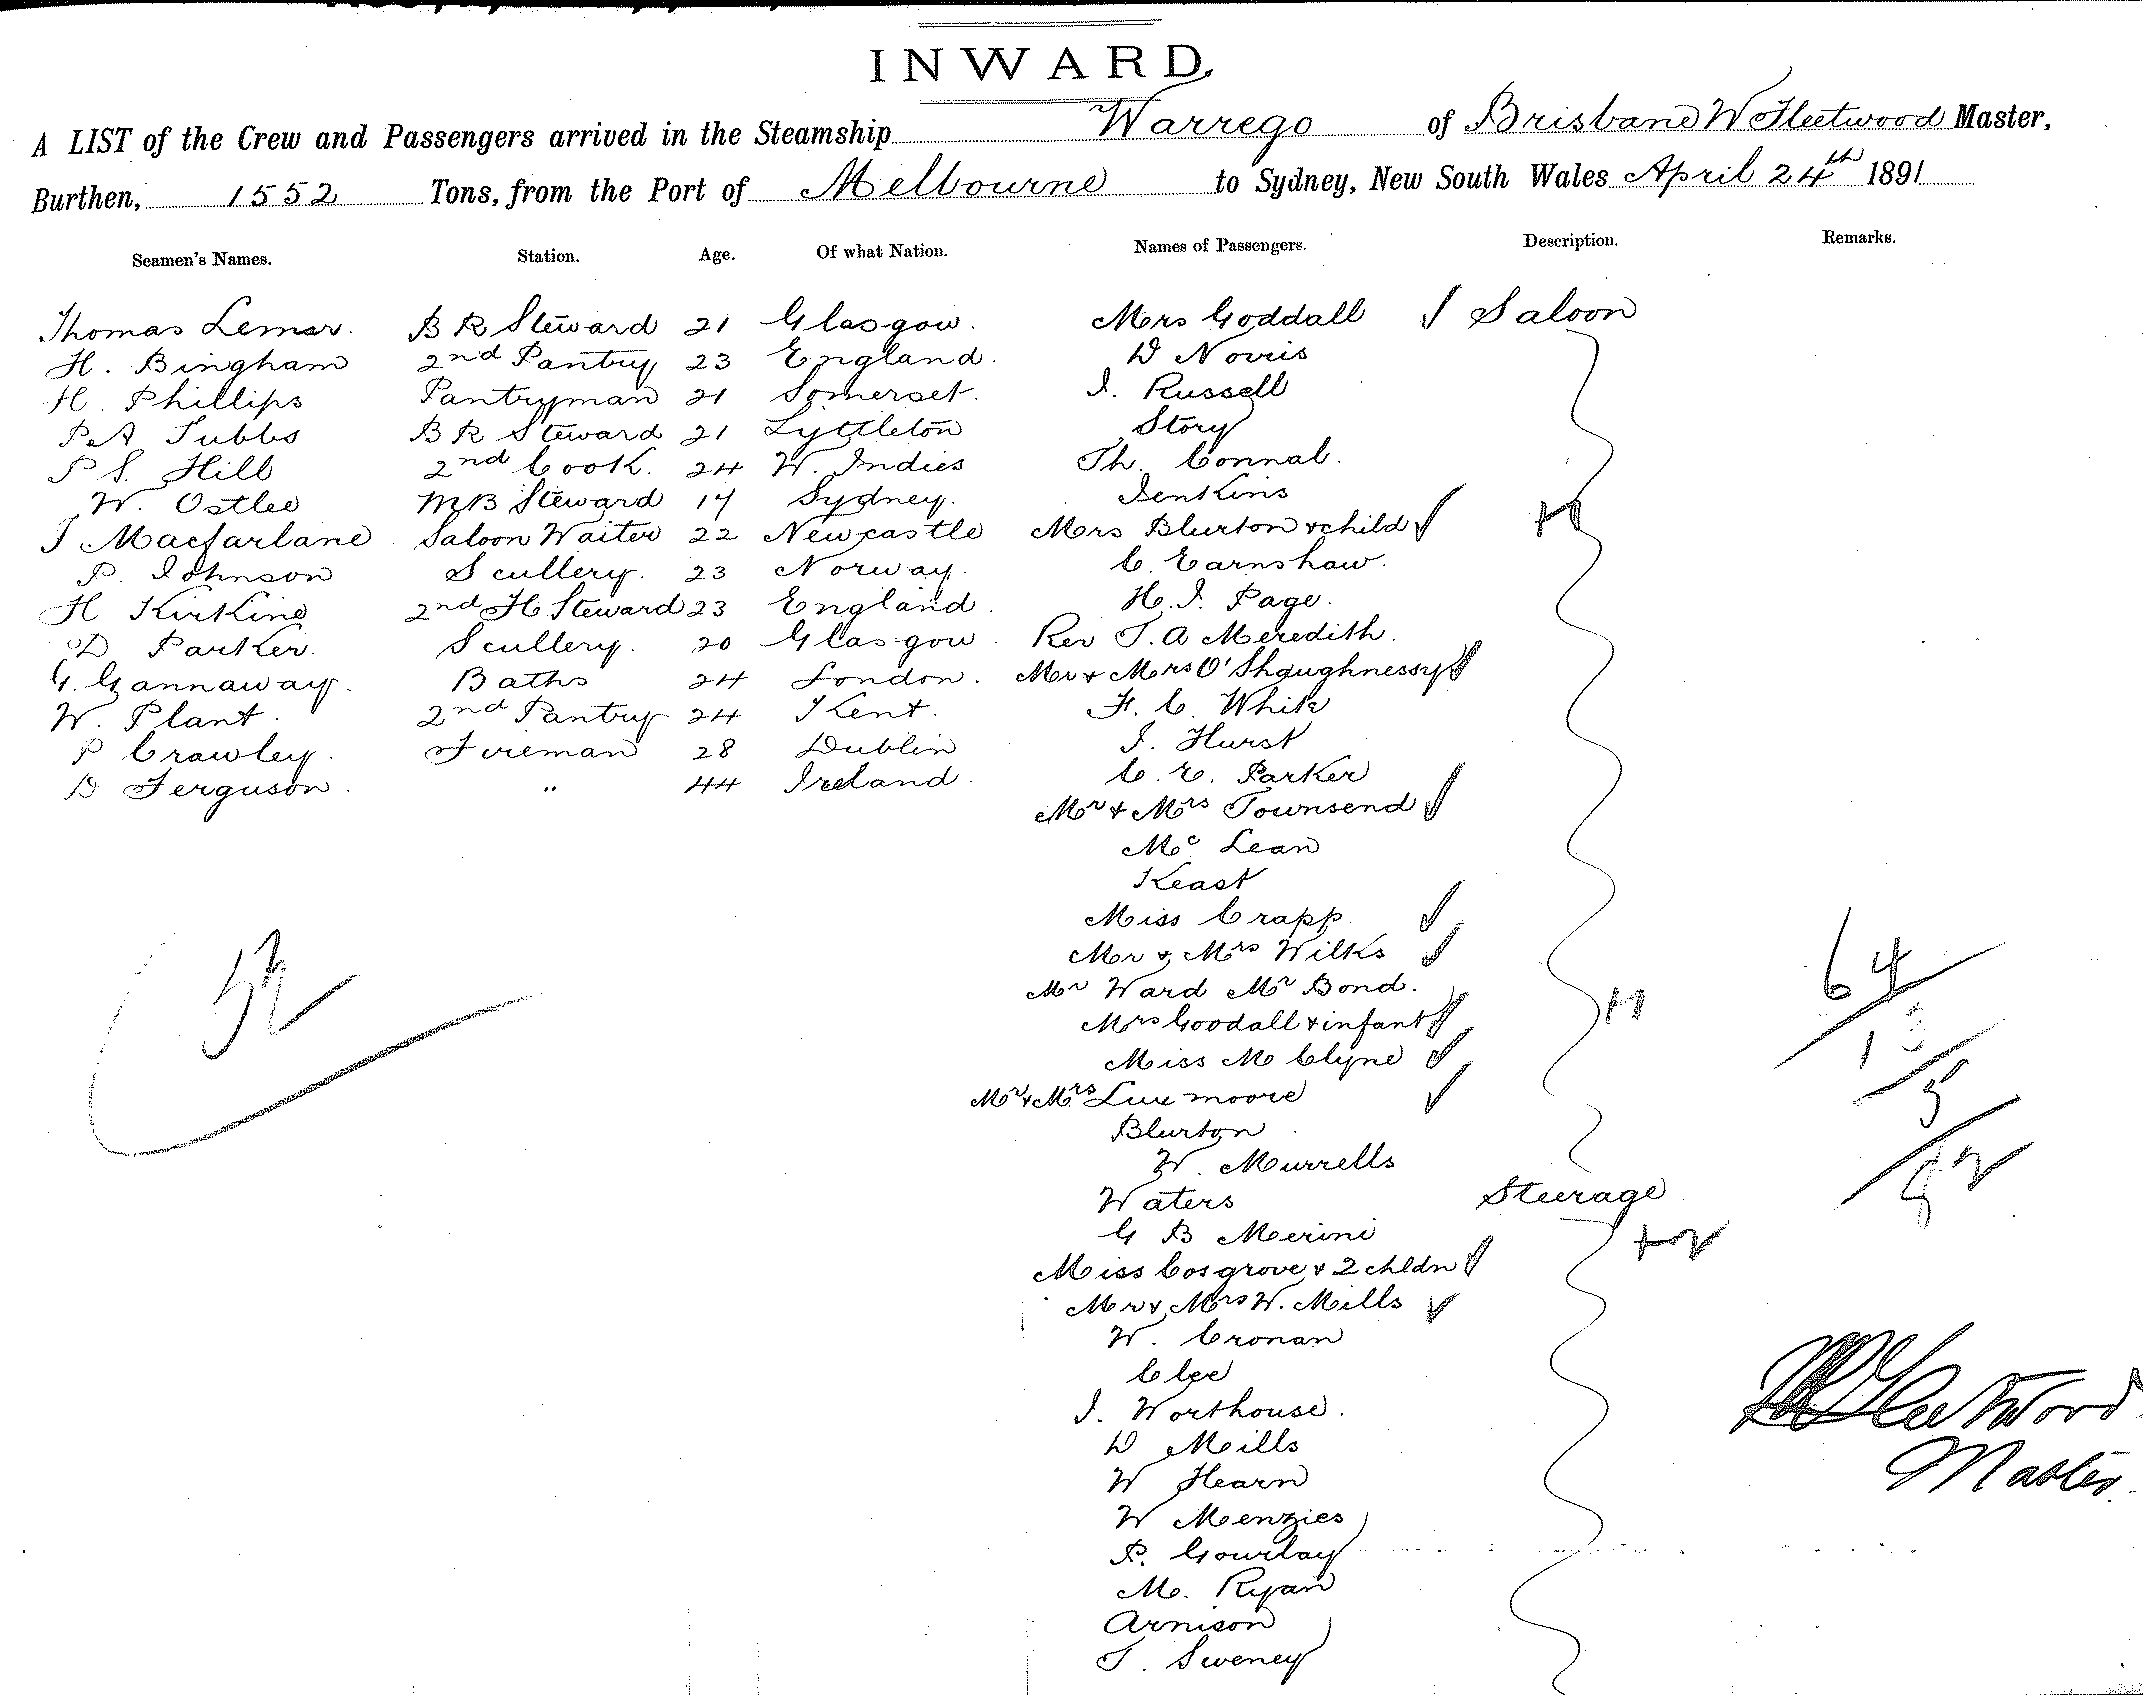 INWARD.
A LIST of the Crew and Passengers arrived in the Steamship Warrego of Brisbane W Fleetwood Master,
Burthen, 1552 Tons, from the Port of Melbourne to Sydney, New South Wales April 24th 1891
Seamen's Names. Station. Age. Of what Nation. Names of Passengers. Description. Remarks.
Thomas Lemar. B R Steward 21 Glasgow. Mrs Goddall Saloon
H. Bingham 2nd Pantry 23 England. D Norris
H. Phillips Pantryman 21 Somerset. J. Russell
P.A Tubbs B R Steward 21 Lyttleton Story
P S. Hill 2nd Cook. 24 W. Indies Th. Connal.
W. Ostlee M B Steward 17 Sydney. Jenkins
J Macfarlane Saloon Waiter 22 Newcastle Mrs Blurton & child
P. Johnson Scullery. 23 Norway. C. Earnshaw.
H Kirkine 2nd H Steward 23 England. H. J. Page.
D Parker. Scullery. 20 Glasgow. Rev J. A Meredith.
G. Gannaway. Baths 24 London. Mr & Mrs O'Shaughnessy
W. Plant. 2nd Pantry 24 Kent. F. C. White
P Crawley. Fireman 28 Dublin J. Hurst
D Ferguson. " 44 Ireland. C. E. Parker
Mr & Mrs Townsend
Mc Lean
Keast
Miss Crapp
Mr & Mrs Wilks
Mr Ward Mr Bond.
Mrs Goodall & infant
Miss M Clyne
Mr & Mrs Luxmoore
Blurton
W. Murrells
Waters Steerage
G B Merini
Miss Cosgrove & 2 chldn
Mr & Mrs W. Mills
W. Cronan
Clee
J. Worthouse.
D Mills
W Hearn
W Menzies
P. Gourlay
M. Ryan
Arnison
T. Sweney
52
64
WFleetwood
Master.